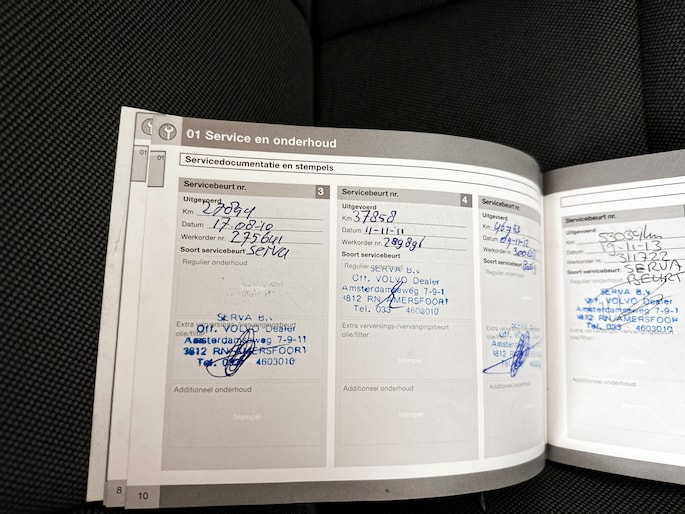 01 Service en onderhoud
01
01
Servicedocumentatie en stempels
Servicebeurt nr. 3
Uitgevoerd
Km 27894
Datum 17-08-10
Werkorder nr. 275641
Soort servicebeurt Serva
Regulier onderhoud
SERVA B.V.
Extra verversings-/vervangingsbeurt
Off. VOLVO Dealer
olie/filter:
Amsterdamseweg 7-9-11
3812 RN AMERSFOORT
Tel. 033 4603010
Additioneel onderhoud
Stempel
Servicebeurt nr. 4
Uitgevoerd
Km 37858
Datum 11-11-11
Werkorder nr. 289891
Soort servicebeurt
Regulier onderhoud
SERVA B.V.
Off. VOLVO Dealer
Amsterdamseweg 7-9-1
3812 RN AMERSFOORT
Tel. 033 4603010
Extra verversings-/vervangingsbeurt
olie/filter:
Stempel
Additioneel onderhoud
Stempel
Servicebeurt nr.
Uitgevoerd
Km 46733
Datum 09-11-12
Werkorder nr.
Soort servicebeurt
Regulier onderhoud
Extra verversings-
olie/filter:
Off. V
Amster
3812 RN
Tel.
Additioneel onderhoud
Servicebeurt nr.
Uitgevoerd
Km 53034km
Datum 19-11-13
Werkorder nr. 311722
Soort servicebeurt SERVA
BEURT
Regulier onderhoud
SERVA B.V.
Off. VOLVO Dealer
Amsterdamseweg 7-9-11
3812 RN AMERSFOORT
Tel. 033 - 4603010
Extra verversings-/vervangingsbeurt
olie/filter:
Additioneel onderhoud
8
10